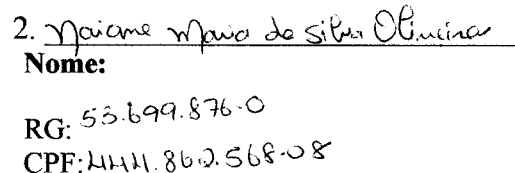 2. Naiane Maria da Silva Oliveira
Nome:
RG: 53.699.876-0
CPF: 444.860.568-08